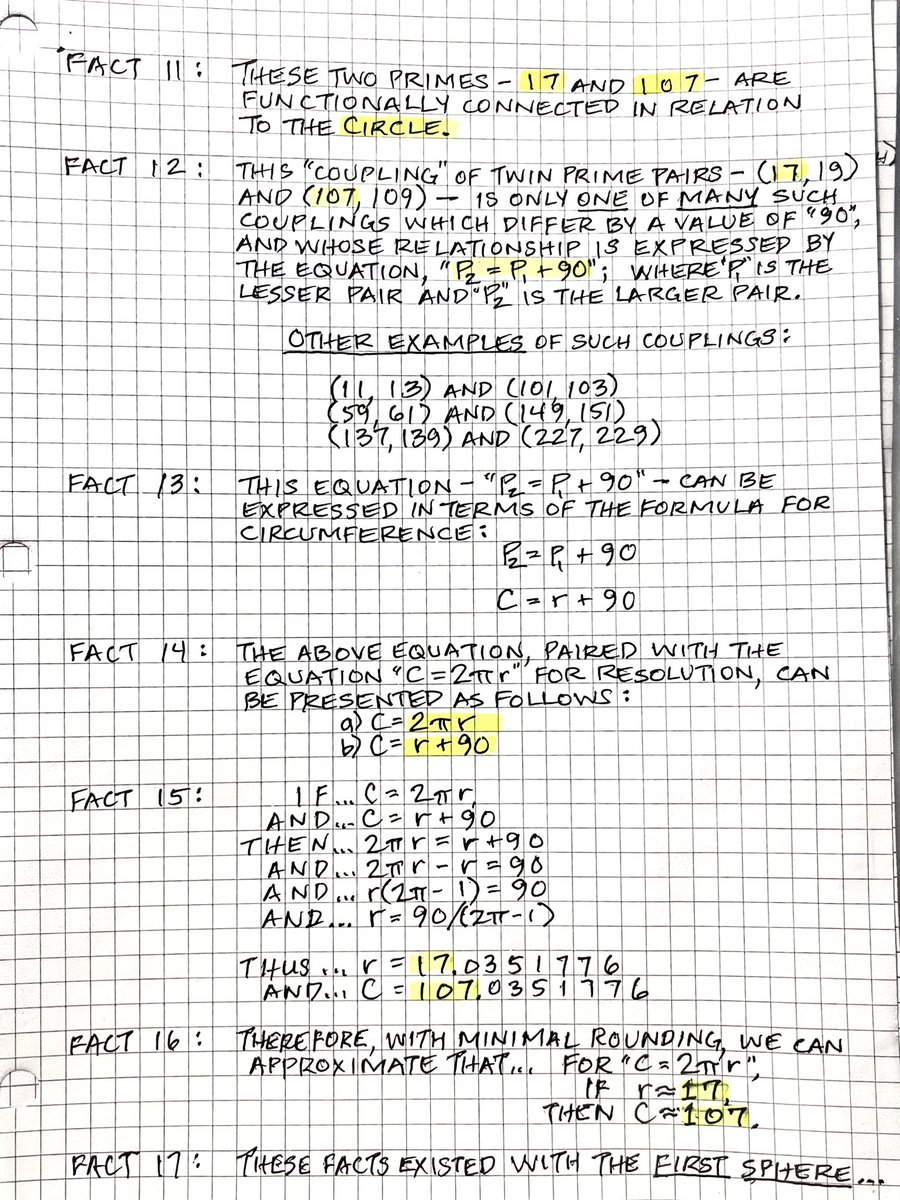 FACT 11: THESE TWO PRIMES - 17 AND 107 - ARE
FUNCTIONALLY CONNECTED IN RELATION
TO THE CIRCLE.
FACT 12: THIS "COUPLING" OF TWIN PRIME PAIRS - (17, 19)
AND (107, 109) - IS ONLY ONE OF MANY SUCH
COUPLINGS WHICH DIFFER BY A VALUE OF "90",
AND WHOSE RELATIONSHIP IS EXPRESSED BY
THE EQUATION, "P₂ = P₁ + 90"; WHERE "P₁" IS THE
LESSER PAIR AND "P₂" IS THE LARGER PAIR.
OTHER EXAMPLES OF SUCH COUPLINGS:
(11, 13) AND (101, 103)
(59, 61) AND (149, 151)
(137, 139) AND (227, 229)
FACT 13: THIS EQUATION - "P₂ = P₁ + 90" - CAN BE
EXPRESSED IN TERMS OF THE FORMULA FOR
CIRCUMFERENCE:
P₂ = P₁ + 90
C = r + 90
FACT 14: THE ABOVE EQUATION, PAIRED WITH THE
EQUATION "C = 2πr" FOR RESOLUTION, CAN
BE PRESENTED AS FOLLOWS:
a) C = 2πr
b) C = r + 90
FACT 15: IF... C = 2πr,
AND... C = r + 90
THEN... 2πr = r + 90
AND... 2πr - r = 90
AND... r(2π - 1) = 90
AND... r = 90/(2π-1)
THUS... r = 17.0351776
AND... C = 107.0351776
FACT 16: THEREFORE, WITH MINIMAL ROUNDING, WE CAN
APPROXIMATE THAT... FOR "C = 2πr",
IF r ≈ 17,
THEN C ≈ 107.
FACT 17: THESE FACTS EXISTED WITH THE FIRST SPHERE...